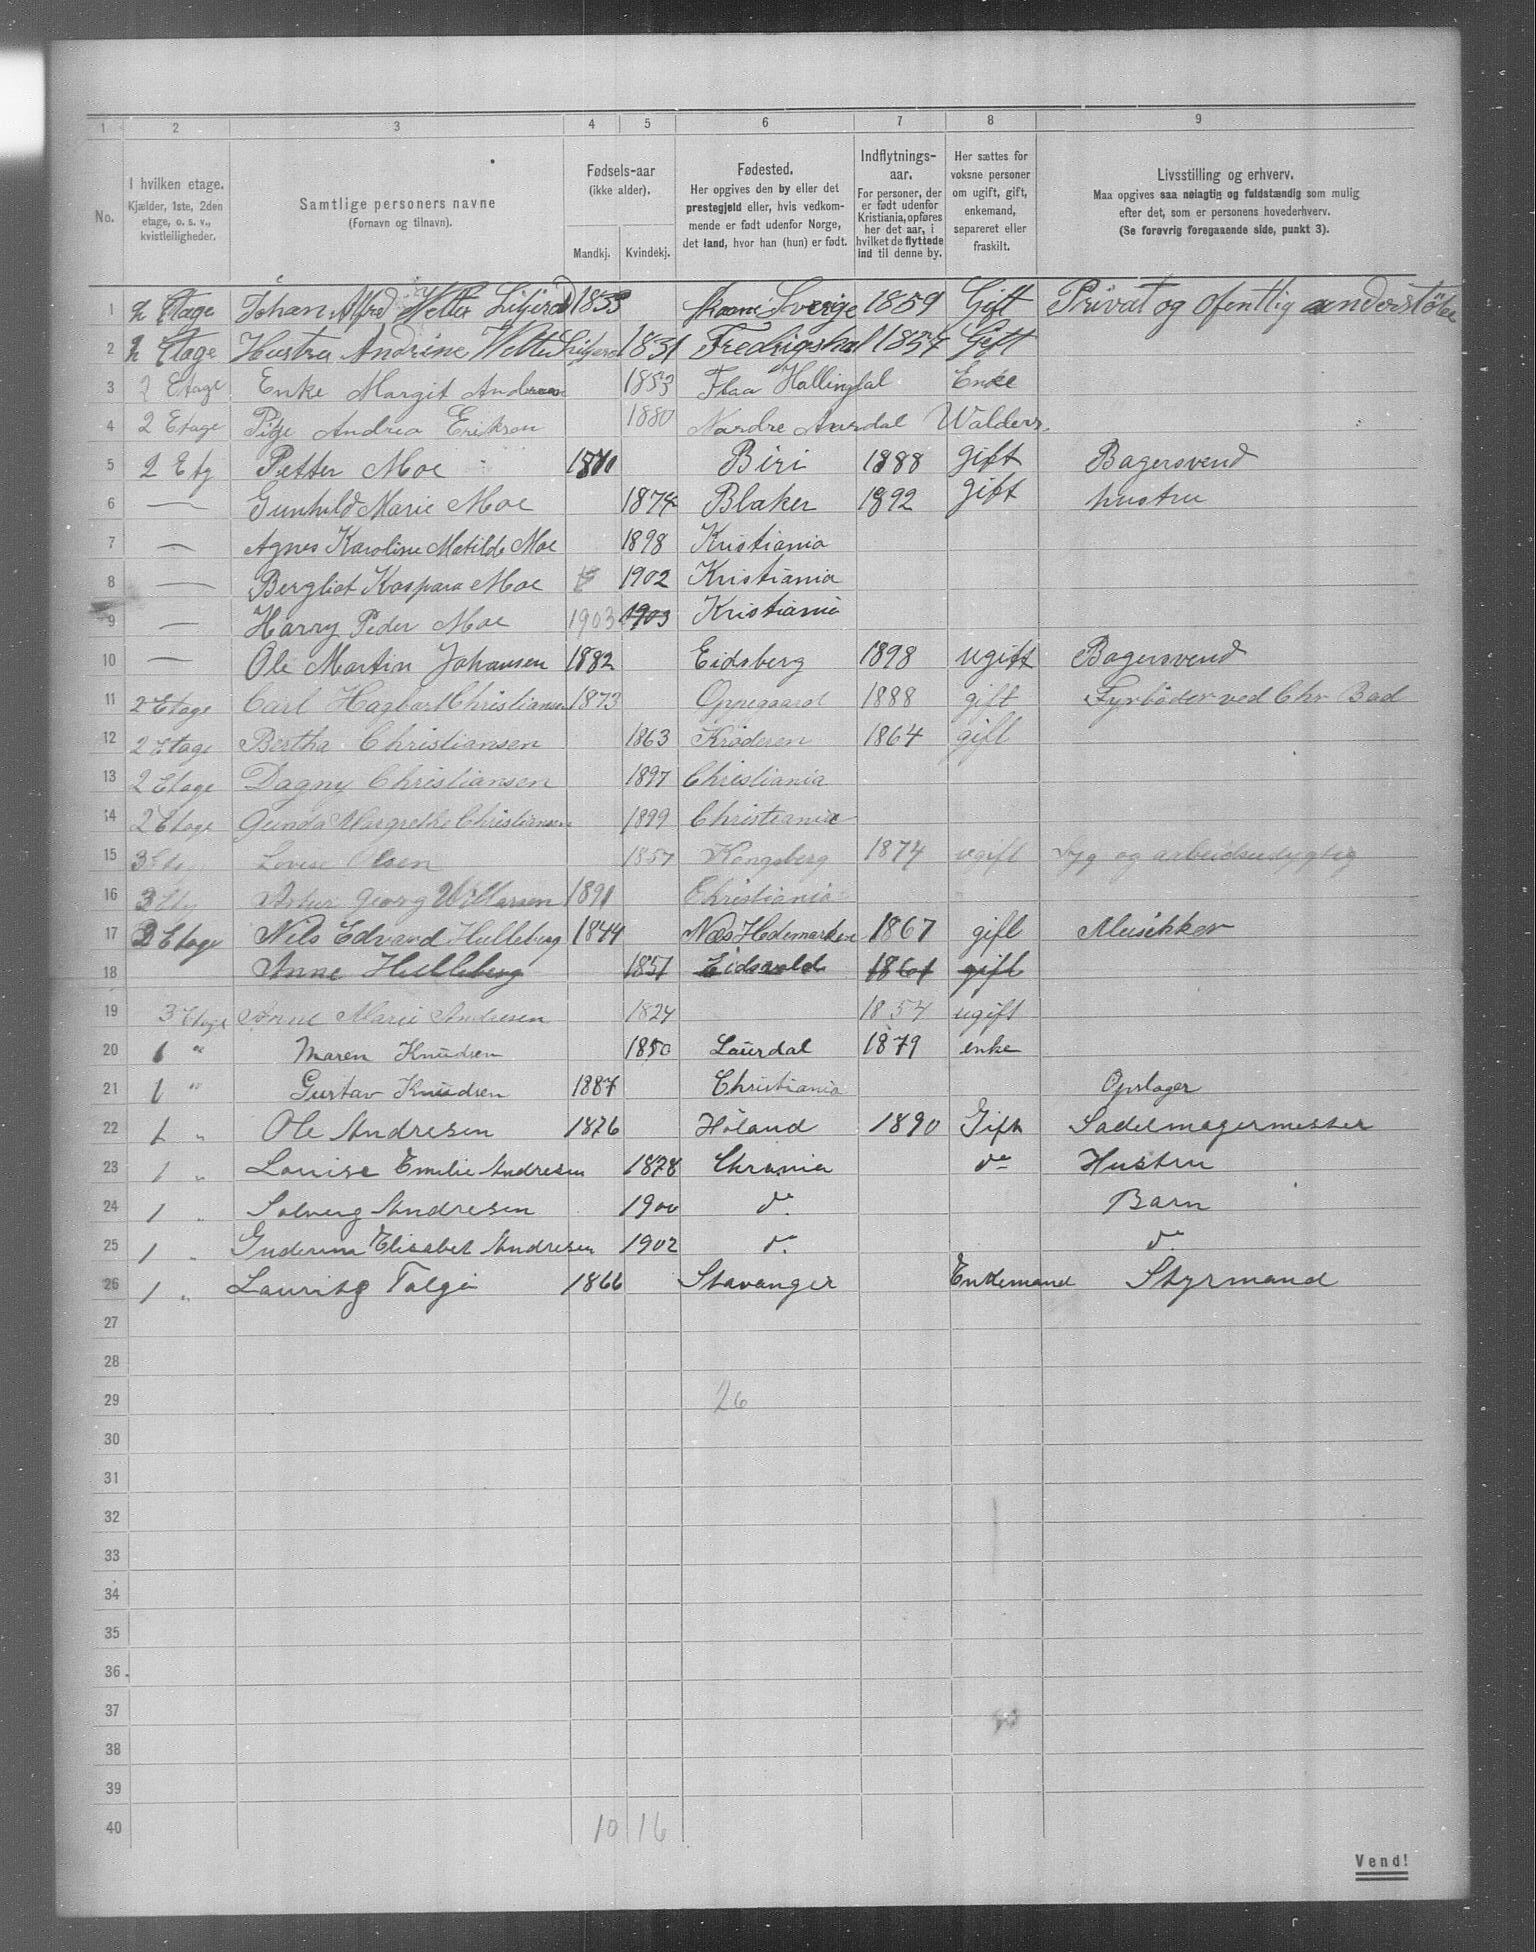 1 2 3 4 5 6 7 8 9
No.
I hvilken etage.
Kjælder, 1ste, 2den
etage, o. s. v.,
kvistleiligheder.
Samtlige personers navne
(Fornavn og tilnavn).
Fødsels-aar
(ikke alder).
Mandkj. Kvindekj.
Fødested.
Her opgives den by eller det
prestegjeld eller, hvis vedkom-
mende er født udenfor Norge,
det land, hvor han (hun) er født.
Indflytnings-
aar.
For personer, der
er født udenfor
Kristiania, opføres
her det aar, i
hvilket de flyttede
ind til denne by.
Her sættes for
voksne personer
om ugift, gift,
enkemand,
separeret eller
fraskilt.
Livsstilling og erhverv.
Maa opgives saa nøiagtig og fuldstændig som mulig
efter det, som er personens hovederhverv.
(Se forøvrig foregaaende side, punkt 3).
1 2 Etage Johan Alfred 1833 Sverige 1859 Gift Privat og ofentlig understötte
2 2 Etage Hustru Andrine 1831 Fredrigshal 1857 Gift
3 2 Etage Enke Margit Andersen 1853 Flaa Hallingdal Enke
4 2 Etage Pige Andrea Erikson 1880 Nordre Aurdal Walders.
5 2 Etg Petter Moe 1870 Biri 1888 gift Bagersvend
6 — Gunhild Marie Moe 1874 Blaker 1892 gift hustru
7 — Agnes Karoline Matilde Moe 1898 Kristiania
8 — Bergliot Kaspara Moe 1902 Kristiania
9 — Harry Peder Moe 1903 1903 Kristiania
10 — Ole Martin Johansen 1882 Eidsberg 1898 ugift Bagersvend
11 2 Etage Carl Hagbart Christiansen 1873 Oppegaard 1888 gift Fyrböder ved Chr Bad
12 2 Etage Bertha Christiansen 1863 Kröderen 1864 gift
13 2 Etage Dagny Christiansen 1897 Christiania
14 2 Etage Gunda Margrethe Christiansen 1899 Christiania
15 3 Etg Lovise Olsen 1857 Kongsberg 1874 ugift Syg og arbeidsudygtig
16 3 Etg Artur Georg Willarsen 1891 Christiania
17 3 Etage Nils Edvard Hulleberg 1844 Næs Hedemarken 1867 gift Musikker
18 Anne Hulleberg 1851 Eidsvold 1861 gift
19 3 Etage Marie Andresen 1824 1854 ugift
20 1 " Maren Knudsen 1850 Laurdal 1879 enke
21 1 " Gustav Knudsen 1887 Christiania Opslager
22 1 " Ole Andresen 1876 Höland 1890 Gift Sadelmagermester
23 1 " Louise Emilie Andresen 1878 Chrania do Hustru
24 1 " Solveig Andresen 1900 do. Barn
25 1 " Elisabet Andresen 1902 do. do.
26 1 " Lauritz Talge 1866 Stavanger Enkemand Styrmand
27
28
29 26
30
31
32
33
34
35
36
37
38
39
40 10 16
Vend!